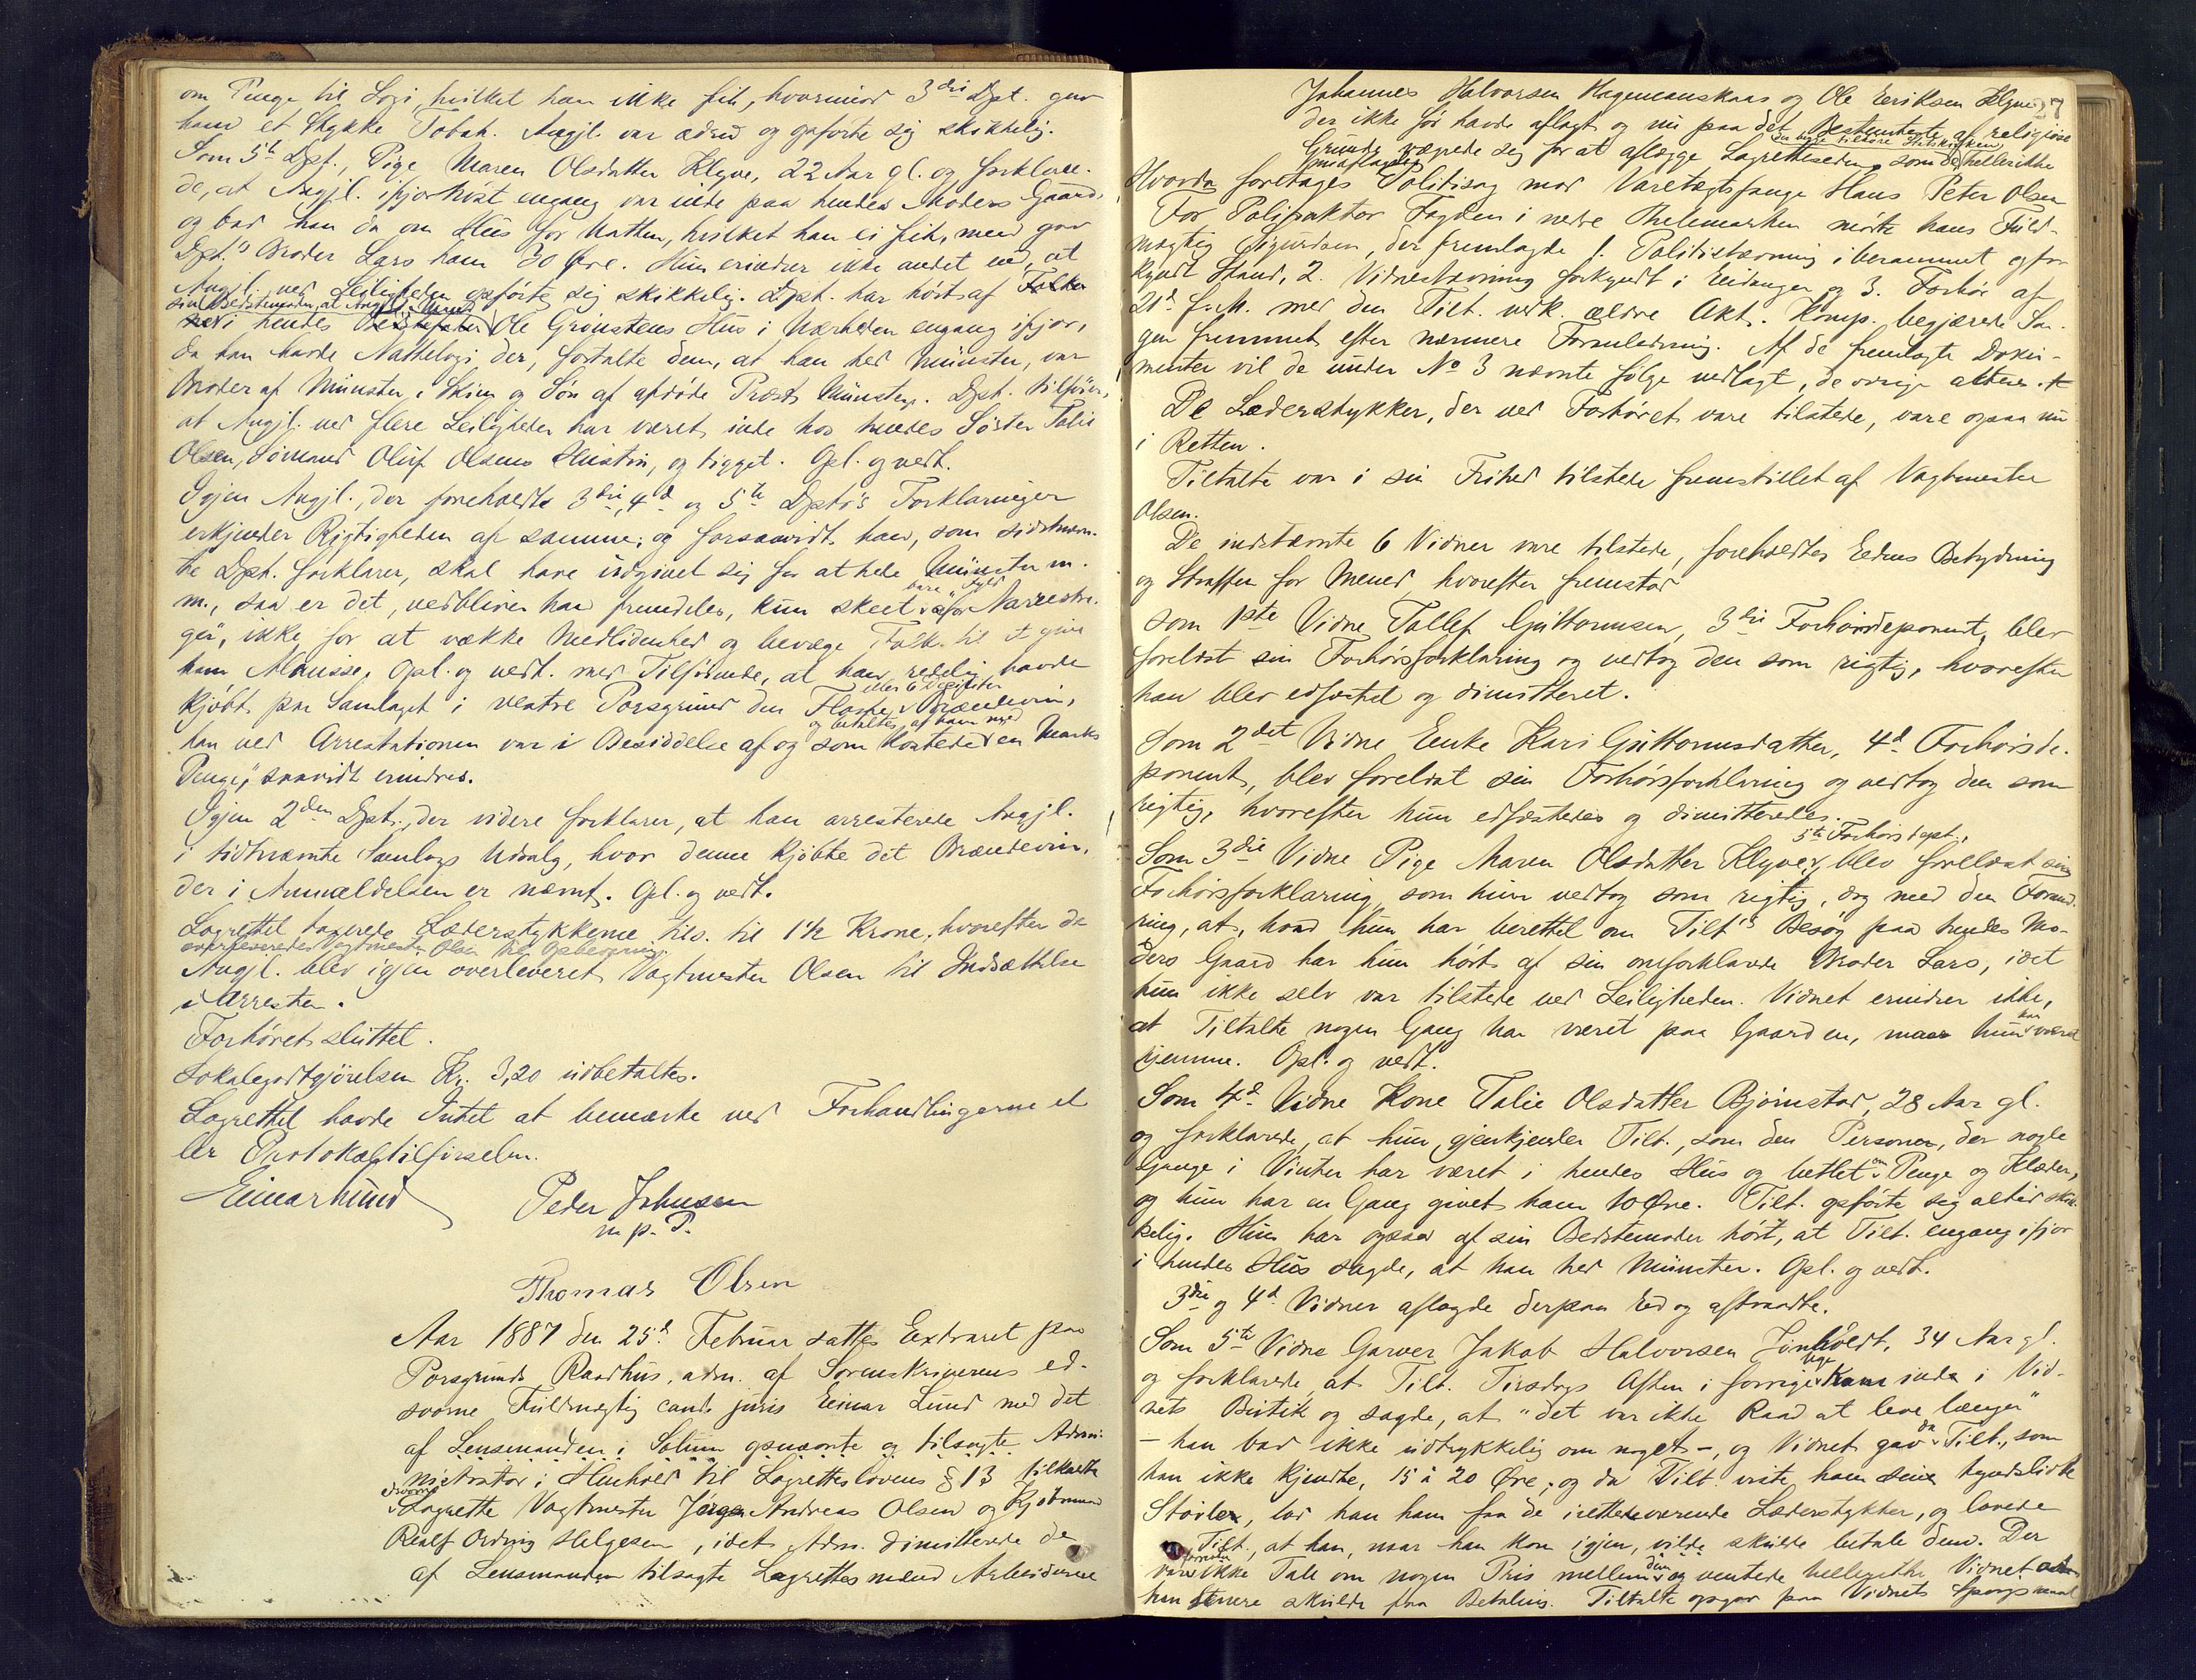 om Penge til Logi, hvilket han ikke fik, hvorimod 3die Dpt. gav
ham et Stykke Tobak. Angjl. var ædru og opførte sig skikkelig.
Som 5te Dpt., Pige Maren Olsdatter Klyve, 22 Aar gl. og forklare-
de, at Angjl. ifjorhøst engang var inde paa hendes Moders Gaard,
og bad han da om Hus for Natten, hvilket han ei fik, men gav
Dpt.s Broder Lars ham 30 Øre. Hun erindrer ikke andet end, at
Angjl. ved Leiligheden opførte sig skikkelig. Dpt. har hørt af Folke
sin Bedstemoder, at Angjl.
i hendes Ole Grønstens Hus i Nærheden engang ifjor,
da han havde Nattelogi der, fortalte dem, at han hed Münster, var
Broder af Münster i Skien og Søn af afdøde Præst Münster. Dpt. tilføier,
at Angjl. ved flere Leiligheder har været inde hos hendes Søster Talie
Olsen, Sømand Oluf Olsens Hustru, og tigget. Opl. og vedt.
Igjen Angjl., der foreholdte 3die, 4de og 5te Dpts Forklaringer
erkjender Rigtigheden af samme; og forsaavidt han, som sidstnævn-
te Dpt. forklarer, skal have udgivet sig for at hede Münster m.
m., saa er det, vedbliver han fremdeles, kun skeet bare for Narrestre-
ger, ikke for at vække Medlidenhed og bevæge Folk til at give
ham Almisse. Opl. og vedt. med Tilføiende, at han redelig havde
eller 6 Decileter
kjøbt paa Samlaget i vestre Porsgrund den Flaske Brændevin,
og betaltes af ham med
han ved Arrestationen var i Besiddelse af og som kostede en Marks
Penge, saavidt erindres.
Igjen 2den Dpt., der videre forklarer, at han arresterede Angjl.
i sidtnævnte Samlags Udsalg, hvor denne kjøbte det Brændevin,
der i Anmældelsen er nævnt. Opl. og vedt.
Lagrettet taxerede Læderstykkerne tils. til 1 1/2 Krone, hvorefter de
overleveredes Vagtmester Olsen til Opbevaring.
Angjl. blev igjen overleveret Vagtmester Olsen til Indsættelse
i Arresten.
Forhøret sluttet.
Lokalegodtgjørelsen Kr. 3,20 udbetaltes.
Lagrettet havde Intet at bemærke ved Forhandlingerne el
ler Protokoltilførselen.
Einar Lund
Peder Johnsen
m. p. P.
Thomas Olsen
Aar 1887 den 25de Februar sattes Extraret paa
Porsgrunds Raadhus, adm. af Sorenskriverens ed-
svorne Fuldmægtig cand. juris Einar Lund med det
af Lensmanden i Solum opnævnte og tilsagte Admi-
nistrator i Henhold til Lagretteslovens § 13 tilkaldte
edsvorne
Lagrette Vagtmester Jørgen Andreas Olsen og Kjøbmand
Realf Ording Helgesen, idet Adm. dimitterede de
af Lensmanden tilsagte Lagrettesmænd Arbeiderne
Johannes Halvorsen Hagemanskaas og Ole Eriksen Klyve
der ikke før havde aflagt og nu paa det Bestemteste af religiøse
(da begge tilhøre Statskirken)
Grunde vægrede sig for at aflægge Lagretteseden, som de heller ikke
Hvorda foretages Politisag mod Varetægtsfange Hans Peter Olsen
For Politiaktor Fogden i nedre Thelemarken mødte hans Fuld-
mægtig Sigurdsen, der fremlagde 1. Politistævning i berammet og for
kyndt Stand, 2. Vidnestævning forkyndt i Eidanger og 3. Forhør af
21de f. M. med den Tilt. vedk. ældre Akt. Komp. begjærede Sa-
gen fremmet efter nærmere Foranledning. Af de fremlagte Doku-
menter vil de under No 3 nævnte følge vedlagt, de øvrige alteres
De Læderstykker, der ved Forhøret vare tilstede, vare ogsaa nu
i Retten.
Tiltalte var i sin Frihed tilstede fremstillet af Vagtmester
Olsen.
De indstævnte 6 Vidner vare tilstede, foreholdtes Edens Betydning
og Straffen for Mened, hvorefter fremstod
som 1ste Vidne Tallef Guttormsen, 3die Forhørsdeponent, blev
forelæst sin Forhørsforklaring og vedtog den som rigtig, hvorefter
han blev edfæstet og dimitteret.
Som 2det Vidne Enke Kari Guttormsdatter, 4de Forhørsde-
ponent, blev forelæst sin Forhørsforklaring og vedtog den som
rigtig, hvorefter hun edfæstedes og dimitteredes.
5te Forhørsdept.,
Som 3die Vidne Pige Maren Olsdatter Klyve, blev forelæst sin
Forhørsforklaring, som hun vedtog som rigtig, dog med den Forand-
ring, at, hvad hun har berettet om Tilts Besøg paa hendes Mo-
ders Gaard har hun hørt af sin omforklarede Broder Lars, idet
hun ikke selv var tilstede ved Leiligheden. Vidnet erindrer ikke,
at Tiltalte nogen Gang har været paa Gaarden, naar hun har været
hjemme. Opl. og vedt.
Som 4de Vidne Kone Talie Olsdatter Bjørnstad, 28 Aar gl.
og forklarede, at hun gjenkjender Tilt., som den Person, der nogle
Gange i Vinter har været i hendes Hus og betlet om Penge og Klæder,
og hun har en Gang givet ham 10 Øre. Tilt. opførte sig altid skik-
kelig. Hun har ogsaa af sin Bedstemoder hørt, at Tilt. engang ifjor
i hendes Hus sagde, at han hed Münster. Opl. og vedt.
3die og 4de Vidner aflagde derpaa Ed og aftraadte.
Som 5te Vidne Garver Jakob Halvorsen 34 Aar gl.
og forklarede, at Tilt. Tirsdags Aften i forrige Uge kom inde i Vid-
nets Butik og sagde, at "det var ikke Raad at leve længer"
– han bad ikke udtrykkelig om noget –, og Vidnet gav da Tilt., som
han ikke kjendte, 15 à 20 Øre; og da Tilt. viste ham sine
Støvler, lod han ham faa de iretteværende Læderstykker, og lovede
Tilt., at han, naar han kom igjen, vilde skulde betale dem. Der
var ikke Tale om nogen Pris mellem dem og ventede heller ikke Vidnet at
han senere skulde faa Betaling. Tiltalte opgav paa Vidnets Spørgsmaal